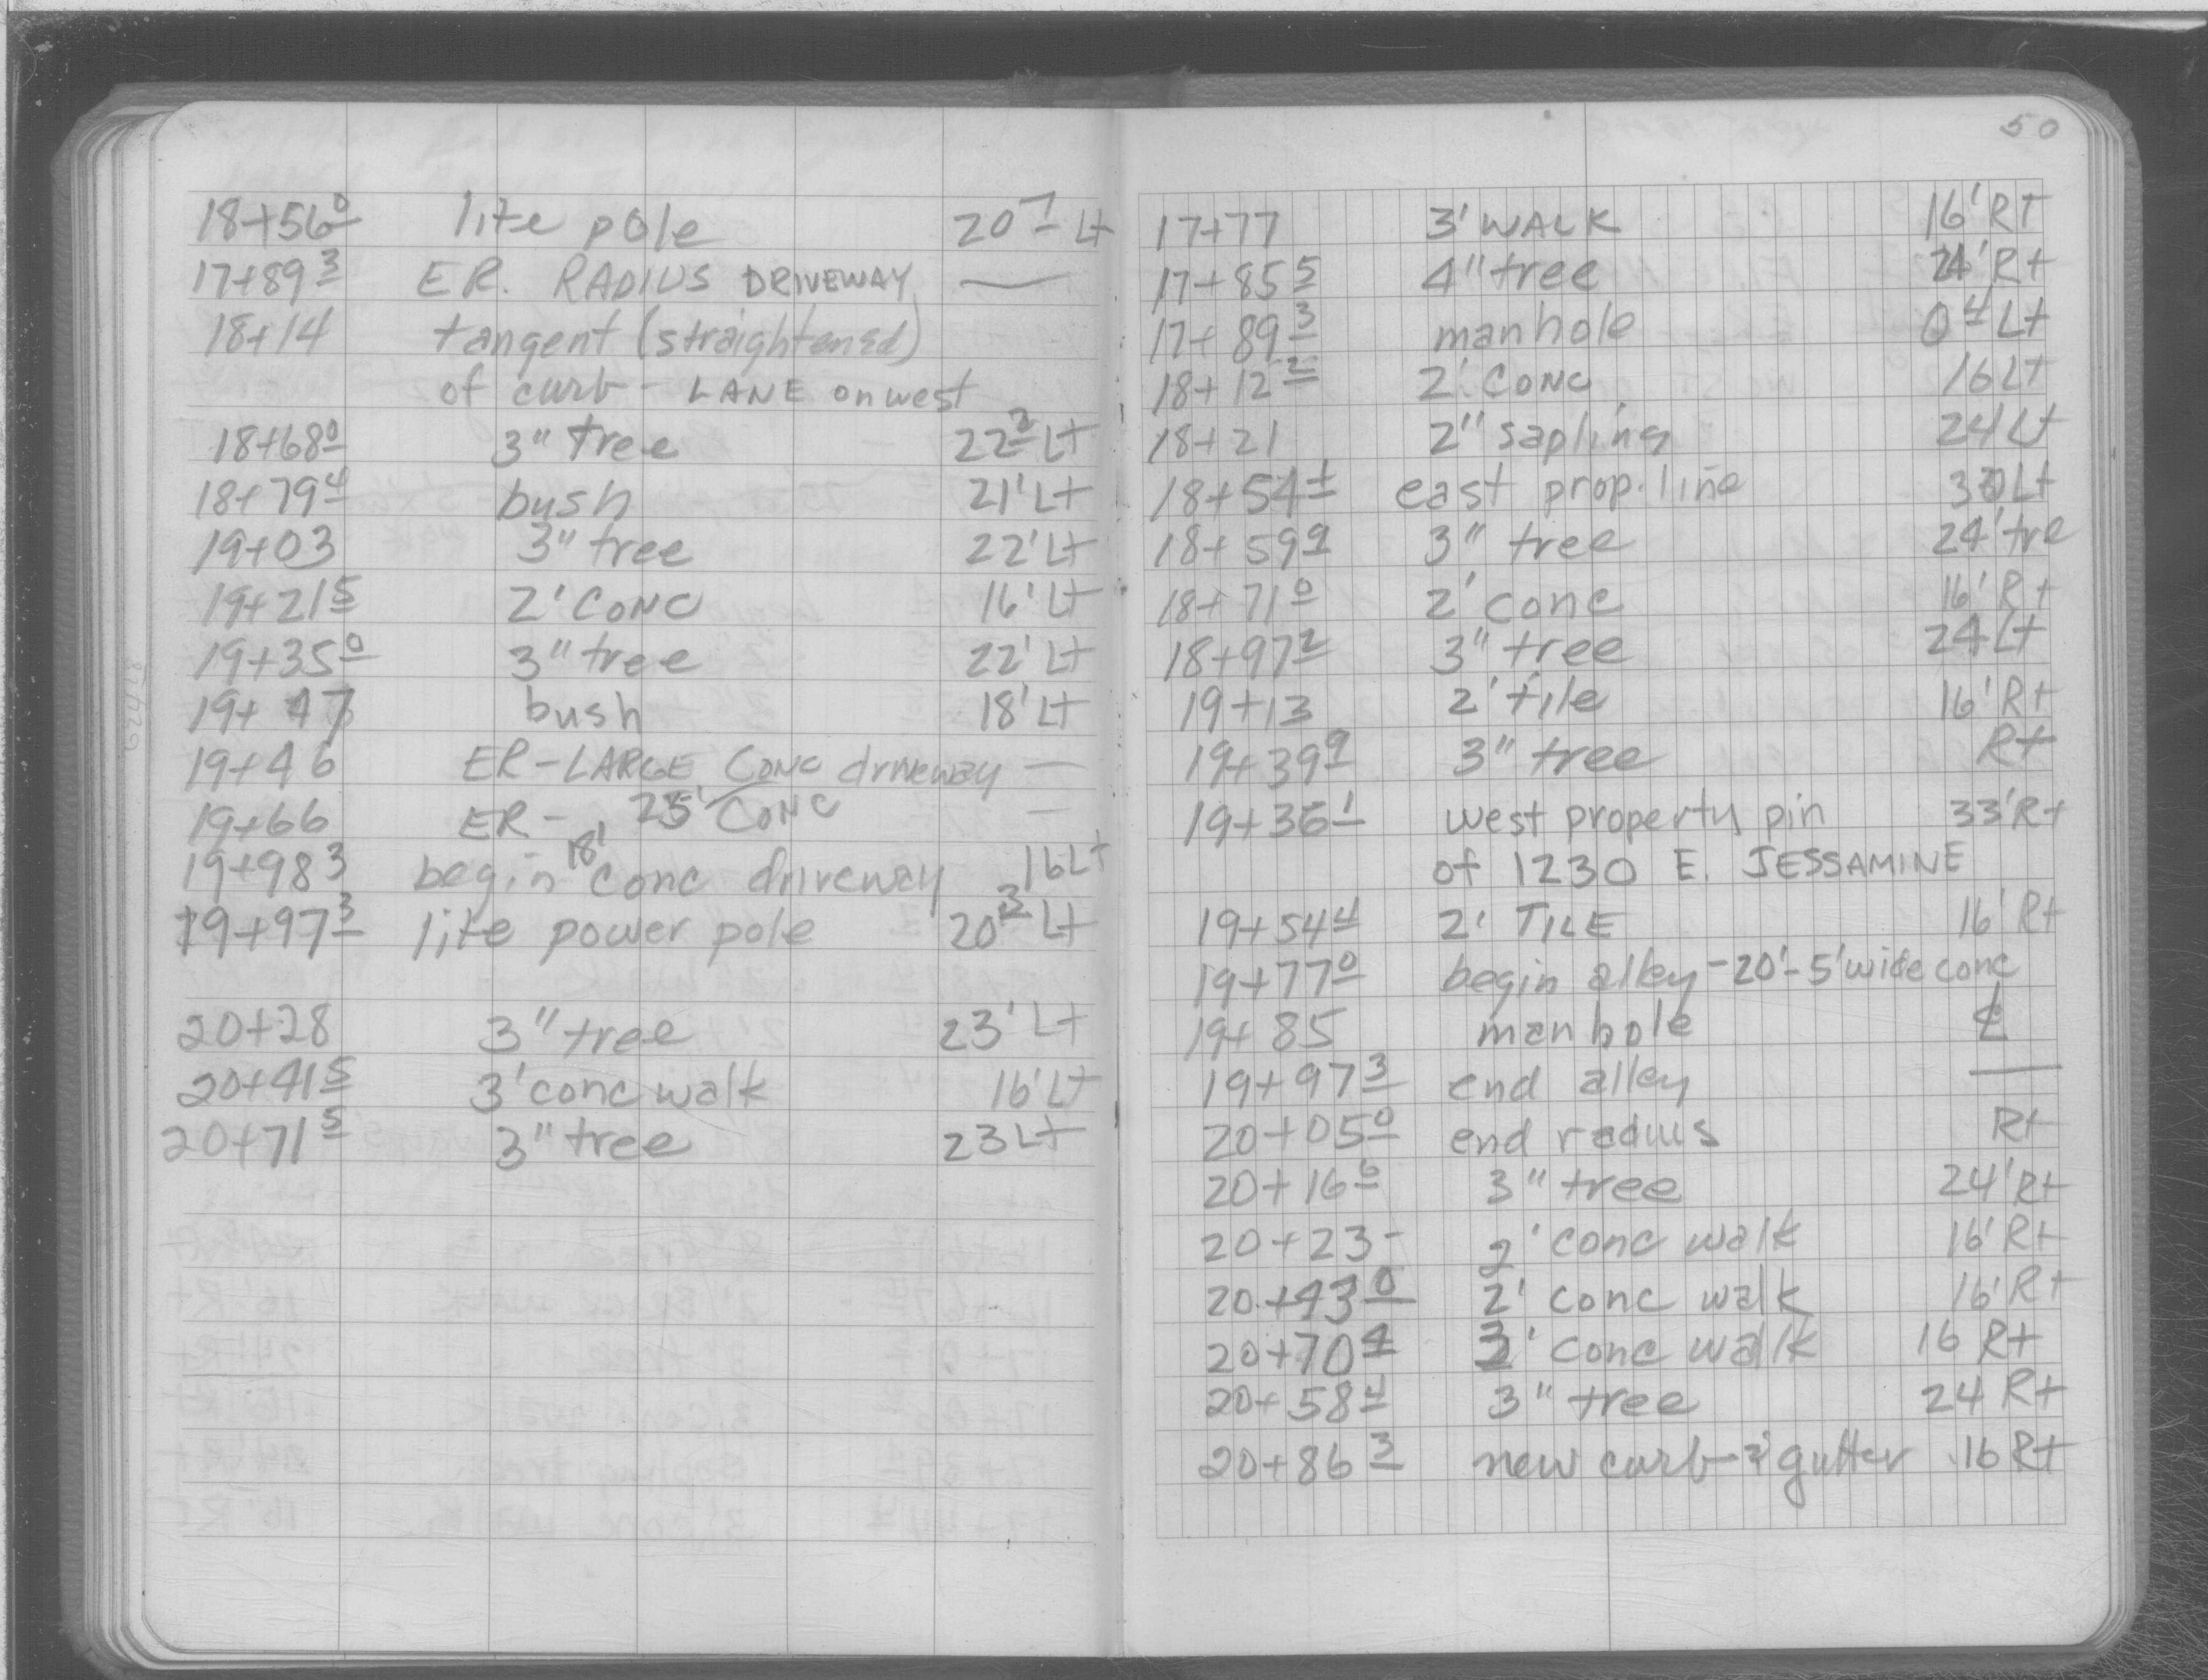 18+56⁰ lite pole 20⁷ Lt
17+89³ ER. RADIUS DRIVEWAY —
18+14 tangent (straightened)
of curb - LANE on west
18+68⁰ 3" tree 22³ Lt
18+79⁴ bush 21' Lt
19+03 3" tree 22' Lt
19+21⁵ 2' CONC 16' Lt
19+35⁰ 3" tree 22' Lt
19+ bush 18' Lt
19+46 ER - LARGE CONC driveway —
19+66 ER - 25' CONC —
19+98³ begin 18' conc driveway 16 Lt
19+97³ lite power pole 20³ Lt
20+28 3" tree 23' Lt
20+41⁵ 3' conc walk 16' Lt
20+71⁵ 3" tree 23 Lt
50
17+77 3' WALK 16' Rt
17+85⁵ 4" tree Rt
17+89³ manhole 0⁴ Lt
18+12² 2' CONC 16 Lt
18+21 2" sapling 24 Lt
18+54⁺ east prop. line Lt
18+59⁹ 3" tree 24' tre
18+71⁰ 2' conc 16' Rt
18+97² 3" tree 24 Lt
19+13 2' tile 16' Rt
19+39⁹ 3" tree Rt
19+36¹ west property pin 33' Rt
of 1230 E. JESSAMINE
19+54⁴ 2' TILE 16' Rt
19+77⁰ begin alley - 20' - 5' wide conc
19+85 manhole ℄
19+97³ end alley —
20+05⁰ end radius Rt
20+16⁶ 3" tree 24' Rt
20+23- 2' conc walk 16' Rt
20+43⁰ 2' conc walk 16' Rt
20+70⁴ 3' conc walk 16 Rt
20+58⁴ 3" tree 24 Rt
20+86³ new curb & gutter 16 Rt